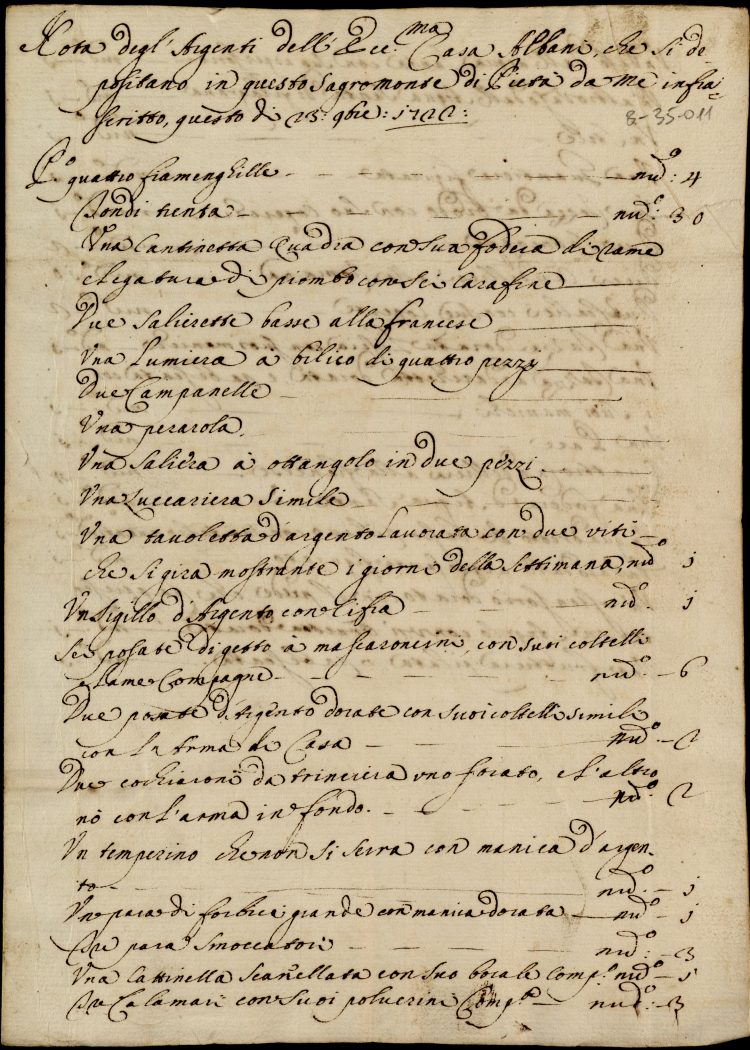 Nota degl'Argenti dell'Ecc.ma Casa Albani, che si de-
positano in questo Sagromonte di Pietà da me infra-
scritto, questo di 23: 9bre: 1722:
8-35-011
P.o quattro fiamenghille - - - - nu.o: 4
Tondi trenta - - - - nu.o: 30
Una Cantinetta Quadra con sua fodera di rame
e legatura di piombo con sei Carafine
Due Salierette basse alla francese
Una Lumiera à bilico di quattro pezzi
Due Campanelle
Una perarola
Una Saliera à ottangolo in due pezzi
Una Zuccariera simile
Una tavoletta d'argento Lavorata con due viti
che si gira mostrante i giorni della settimana, nu.o 1
Un Sigillo d'Argento con Cifra - - - nu.o 1
Sei posate di getto à mascaroncini, con suoi coltelli
e lame Compagne - - - nu.o - 6
Due posate d'Argento dorate con suoi coltelli simili
con L'Arma di Casa - - - nu.o - 2
Due cochiaroni da trinciera uno forato, e l'altro
nò con L'arma in fondo. - - - nu.o 2
Un temperino che non si serra con manica d'argen-
to - nu.o - 1
Uno para di forbici grande con manica dorata - nu.o - 1
Tre para smoccatori - - - nu.o - 3
Una Cattinella scanellata con suo bocale Comp.o nu.o - 1
Tre Calamari con suoi polverini Comp.i - nu.o - 3